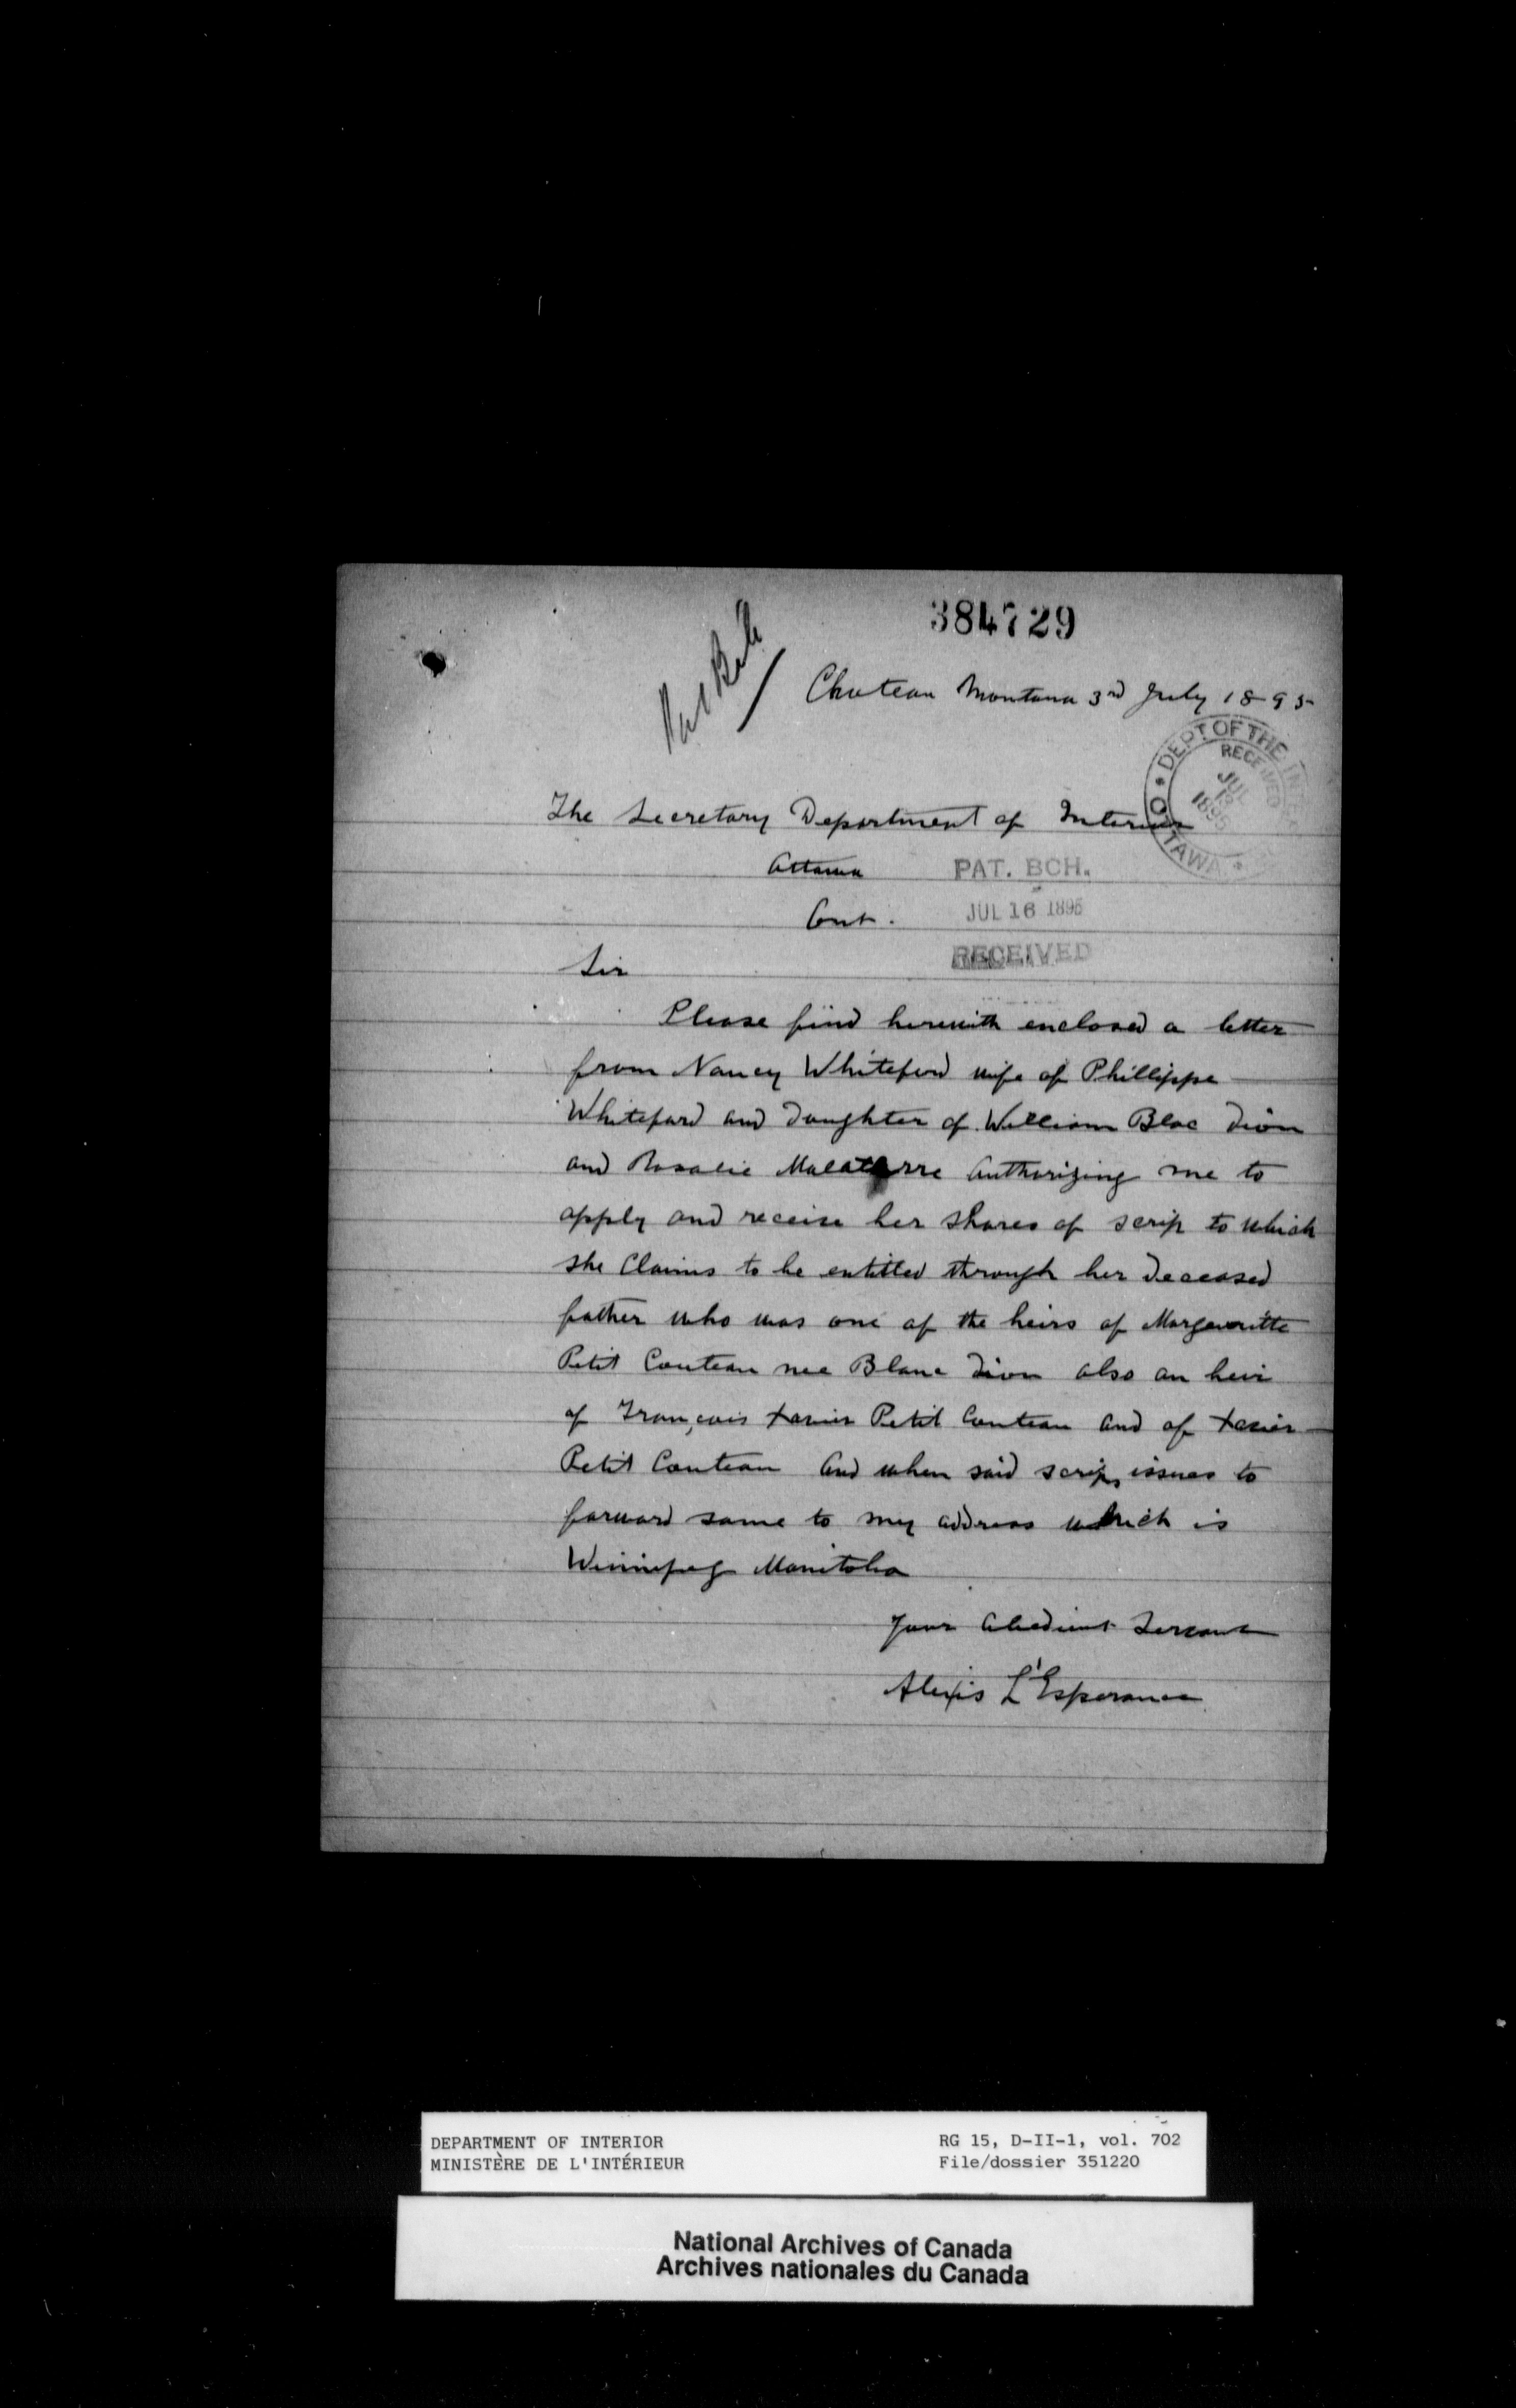 384729
Pat Bch
Choteau Montana 3rd July 1895
DEPT OF THE INTERIOR
RECEIVED
JUL
1895
OTTAWA
The Secretary Department of Interior
Ottawa
PAT. BCH.
Ont.
JUL 16 1895
RECEIVED
Sir
Please find herewith enclosed a letter
from Nancy Whiteford wife of Phillippe
Whiteford and Daughter of William Blac Dion
and Rosalie Malaterre authorizing me to
apply and receive her shares of scrip to which
she Claims to be entitled through her Deceased
father who was one of the heirs of Margeuritte
Petit Couteau nee Blanc Dion also an heir
of François Xavier Petit Couteau and of Xavier
Petit Couteau and when said scrip issues to
forward same to my address which is
Winnipeg Manitoba
Your Obedient Servant
Alexis L'Esperance
DEPARTMENT OF INTERIOR
MINISTÈRE DE L'INTÉRIEUR
RG 15, D-II-1, vol. 702
File/dossier 351220
National Archives of Canada
Archives nationales du Canada